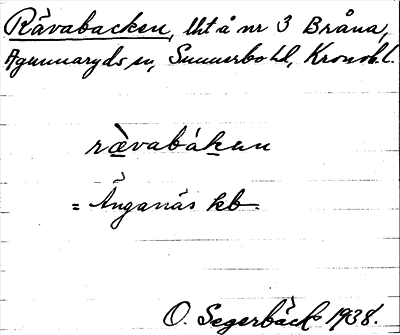 Rävabacken, lht å nr 3 Bråna,
Agunnaryds sn, Sunnerbo hd, Kronob. l.
rävabákan
= Änganäs kb
O. Segerbäck 1938.